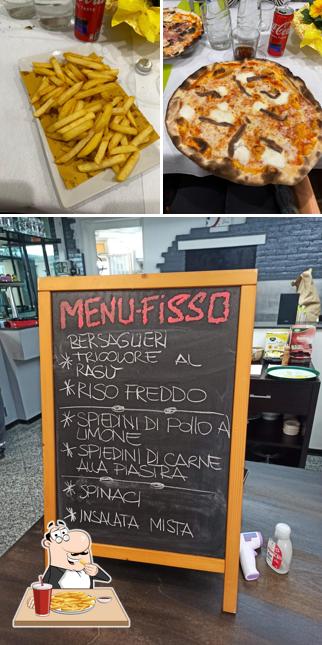 MENU-FISSO
BERSAGLIERI
* TRICOLORE AL
RAGU'
* RISO FREDDO
* SPIEDINI DI POLLO A
LIMONE
* SPIEDINI DI CARNE
ALLA PIASTRA
* SPINACI
* INSALATA MISTA